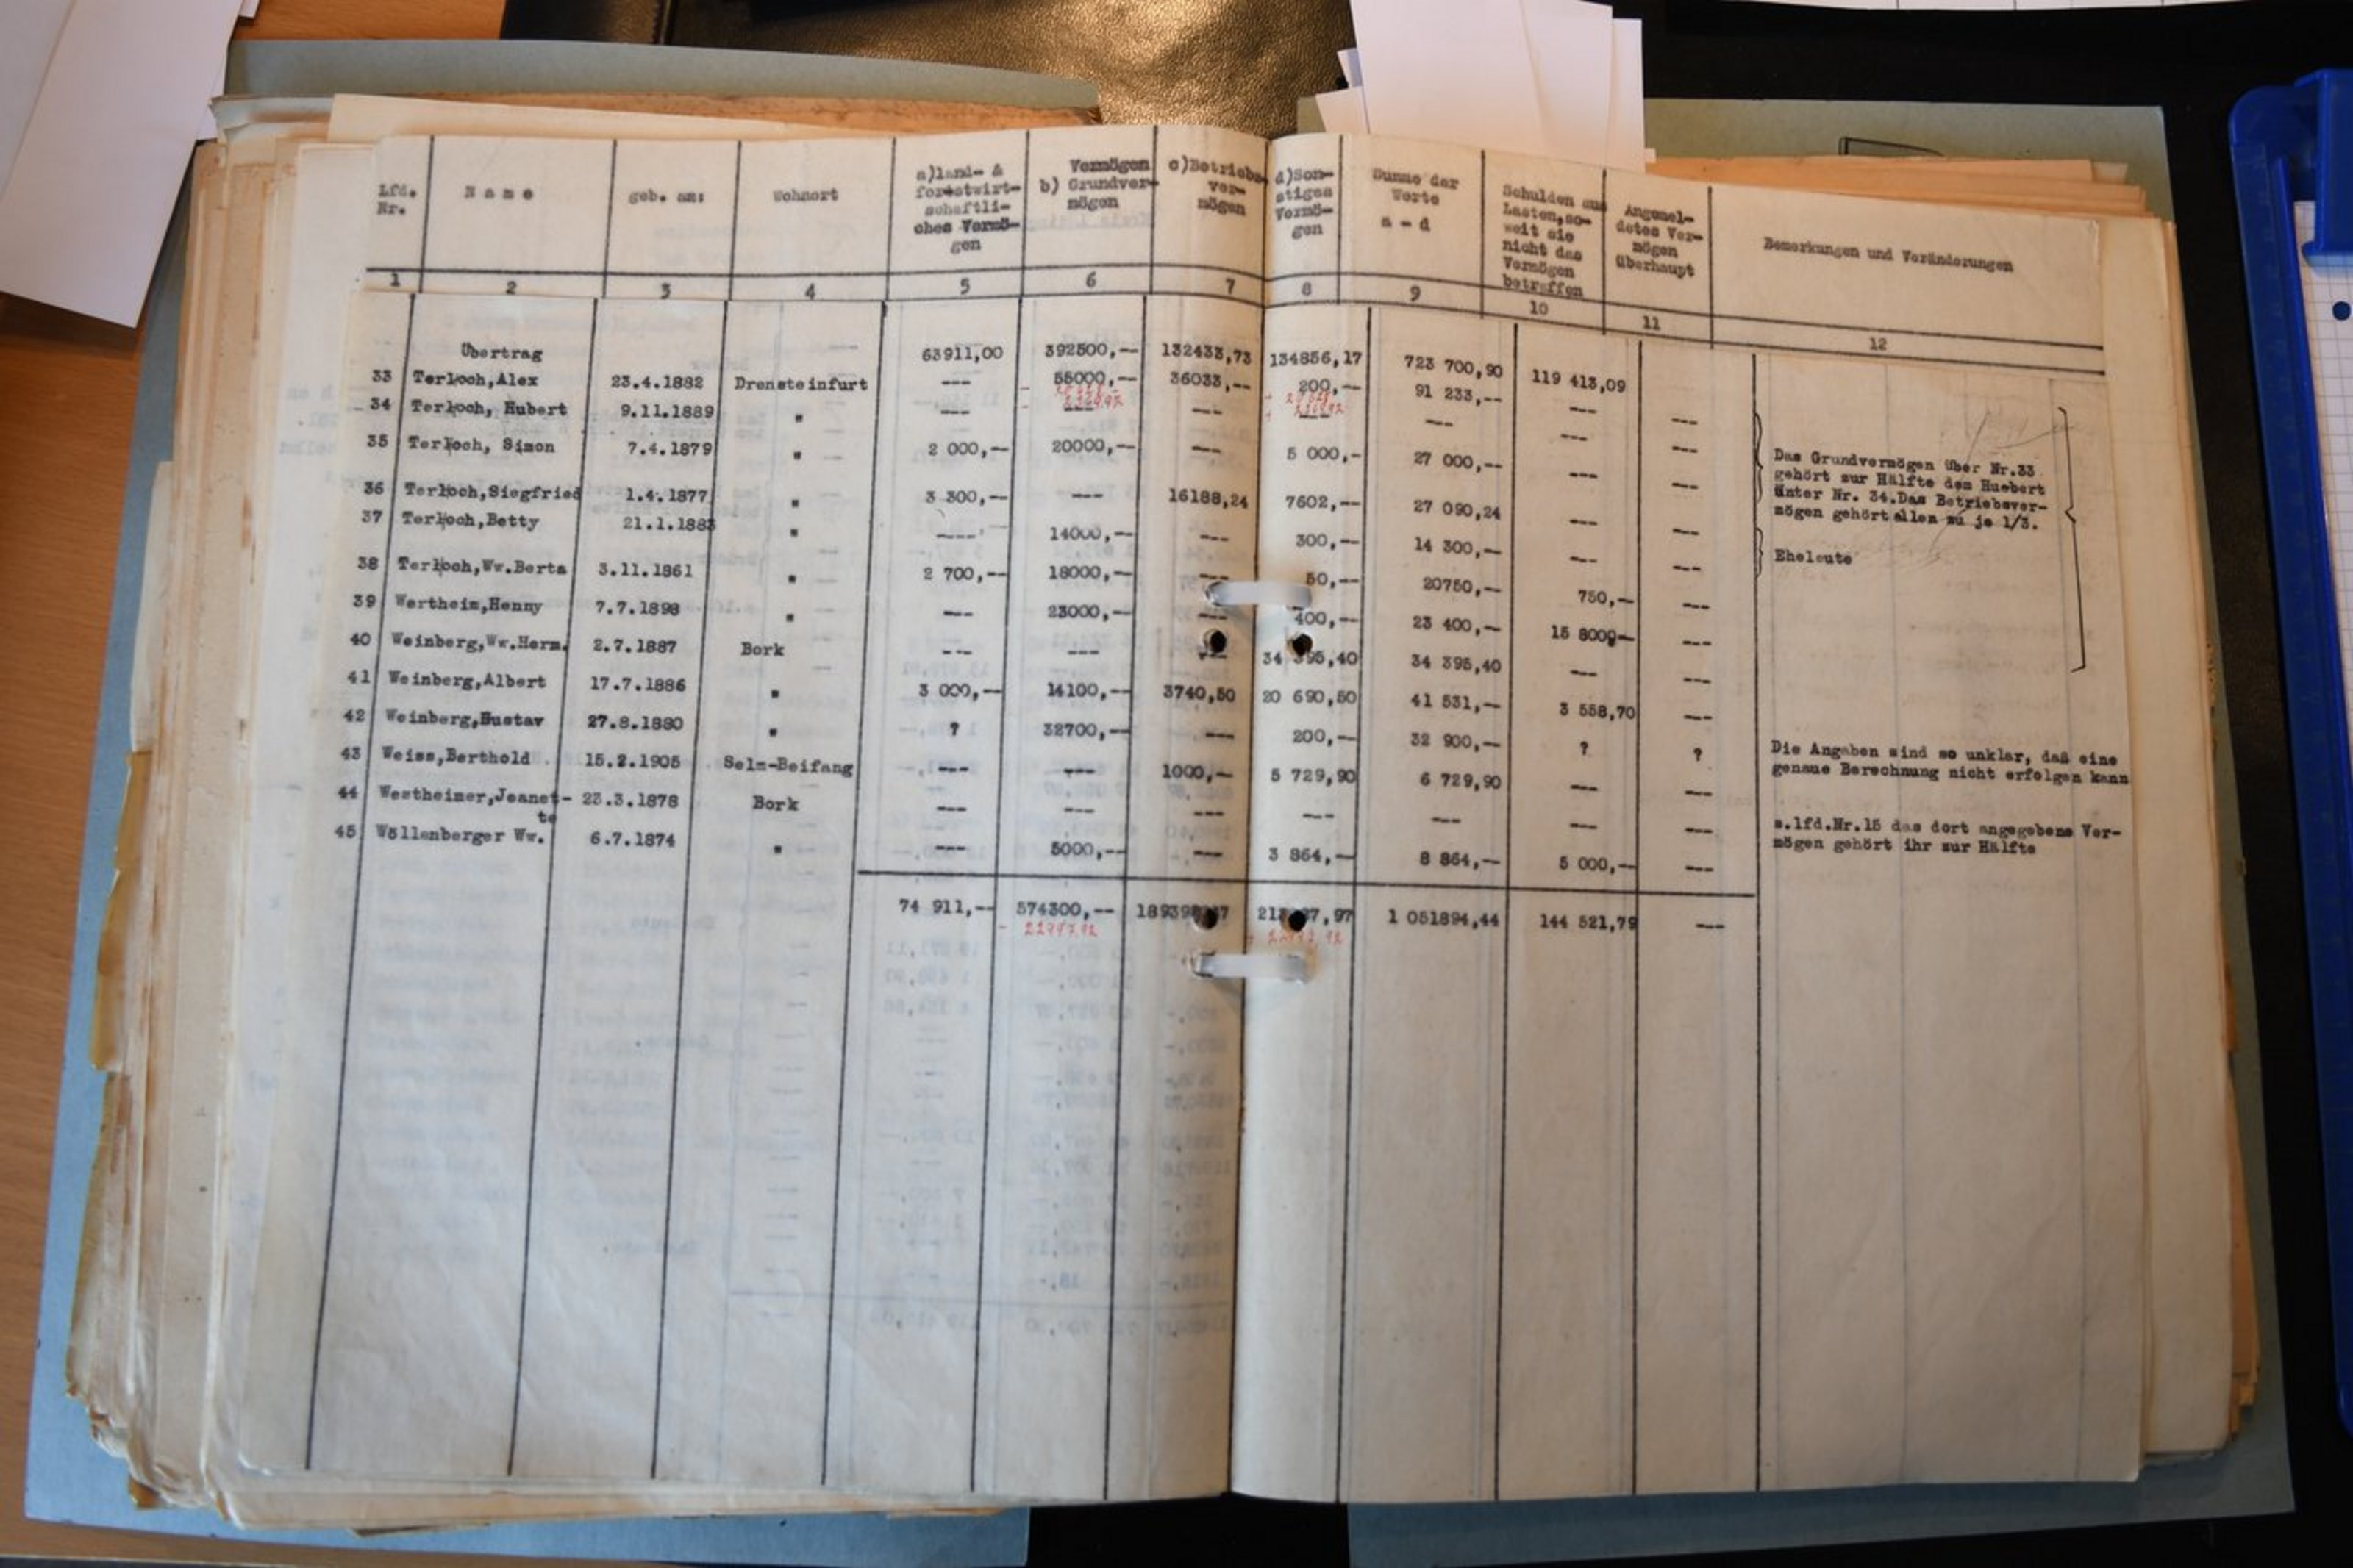 Lfd. Nr.
Name
geb. am:
Wohnort
a)land- & forstwirt-schaftli-ches Vermö-gen
Vermögen
b) Grundver-mögen
c)Betriebs-ver-mögen
d)Son-stiges Vermö-gen
Summe der Werte a - d
Schulden aus Lasten,so-weit sie nicht das Vermögen betreffen
Angemel-detes Ver-mögen überhaupt
Bemerkungen und Veränderungen
1 2 3 4 5 6 7 8 9 10 11 12
Übertrag 63911,00 392500,-- 132433,73 134856,17 723 700,90 119 413,09
33 Terloch,Alex 23.4.1882 Drensteinfurt --- 55000,-- 36033,-- 200,-- 91 233,-- --- ---
34 Terloch, Hubert 9.11.1889 " --- --- --- --- --- --- ---
35 Terloch, Simon 7.4.1879 " 2 000,-- 20000,-- --- 5 000,- 27 000,-- --- ---
Das Grundvermögen über Nr.33
gehört zur Hälfte dem Huebert
unter Nr. 34.Das Betriebsver-
mögen gehört allen zu je 1/3.
36 Terloch,Siegfried 1.4.1877 " 3 300,-- --- 16188,24 7602,-- 27 090,24 --- ---
37 Terloch,Betty 21.1.1883 " ---- 14000,-- --- 300,-- 14 300,-- --- ---
Eheleute
38 Terloch,Ww.Berta 3.11.1861 " 2 700,-- 18000,-- --- 50,-- 20750,-- 750,-- ---
39 Wertheim,Henny 7.7.1898 " --- 23000,-- --- 400,-- 23 400,-- 15 800,-- ---
40 Weinberg,Ww.Herm. 2.7.1887 Bork --- --- --- 34 395,40 34 395,40 --- ---
41 Weinberg,Albert 17.7.1886 " 3 000,-- 14100,-- 3740,50 20 690,50 41 531,-- 3 558,70 ---
42 Weinberg,Gustav 27.8.1880 " ? 32700,-- --- 200,-- 32 900,-- ? ?
Die Angaben sind so unklar, daß eine
genaue Berechnung nicht erfolgen kann
43 Weiss,Berthold 15.2.1905 Selm-Beifang --- --- 1000,-- 5 729,90 6 729,90 --- ---
44 Westheimer,Jeanet-te 23.3.1878 Bork --- --- --- --- --- --- ---
s.lfd.Nr.15 das dort angegebene Ver-
mögen gehört ihr zur Hälfte
45 Wöllenberger Ww. 6.7.1874 " --- 5000,-- --- 3 864,-- 8 864,-- 5 000,-- ---
74 911,-- 574300,-- 1 051894,44 144 521,79 ---
- 22947.92